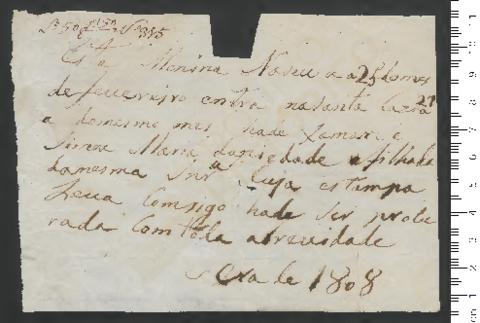 Esta Menina Naseu a a 25 domes
de feuereiro entra nasanta Caza
a 27 domesmo mes hade xamarce
Maria da piedade afilhada
damesma Snra Cuja estampa
Leua Comsigo hade ser procu
rada Com toda abreuidade
Era de 1808